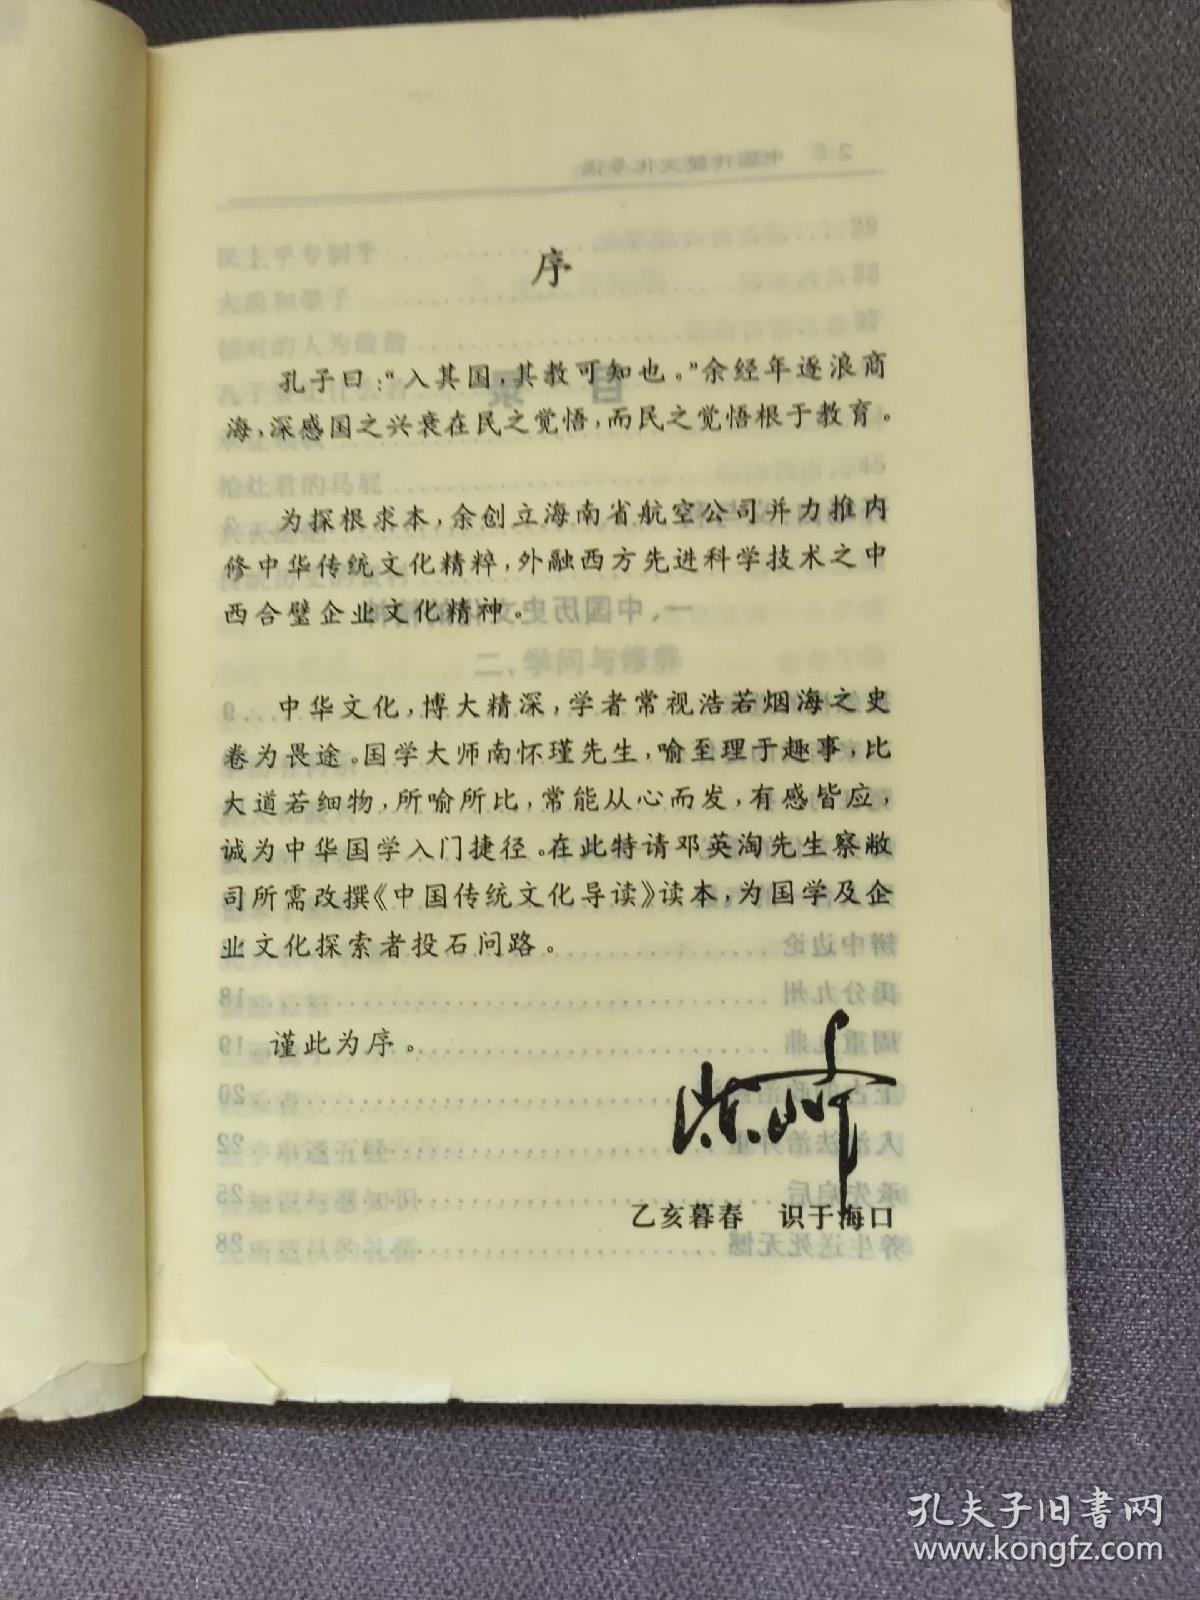 序
孔子曰：“入其国，其教可知也。”余经年逐浪商
海，深感国之兴衰在民之觉悟，而民之觉悟根于教育。
为探根求本，余创立海南省航空公司并力推内
修中华传统文化精粹，外融西方先进科学技术之中
西合璧企业文化精神。
中华文化，博大精深，学者常视浩若烟海之史
卷为畏途。国学大师南怀瑾先生，喻至理于趣事，比
大道若细物，所喻所比，常能从心而发，有感皆应，
诚为中华国学入门捷径。在此特请邓英淘先生察敝
司所需改撰《中国传统文化导读》读本，为国学及企
业文化探索者投石问路。
谨此为序。
陈峰
乙亥暮春　识于海口
孔夫子旧书网
www.kongfz.com